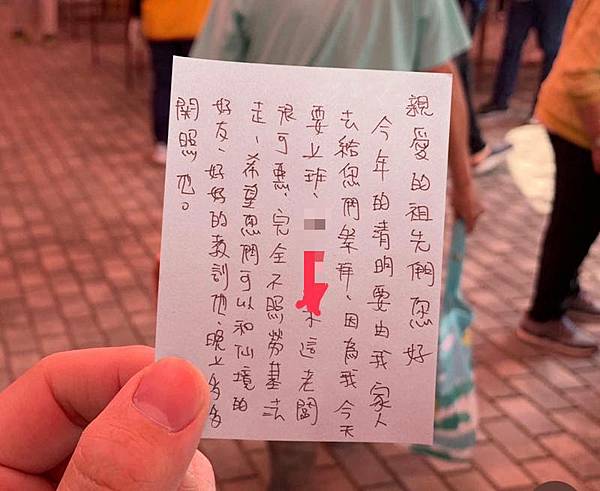 親愛的祖先們您好
今年的清明要由我家人
去給您們祭拜、因為我今天
要上班、這老闆
很可惡、完全不照勞基法
走、希望您們可以和仙境的
好友、好好的教訓他、晚上多多
關照他。